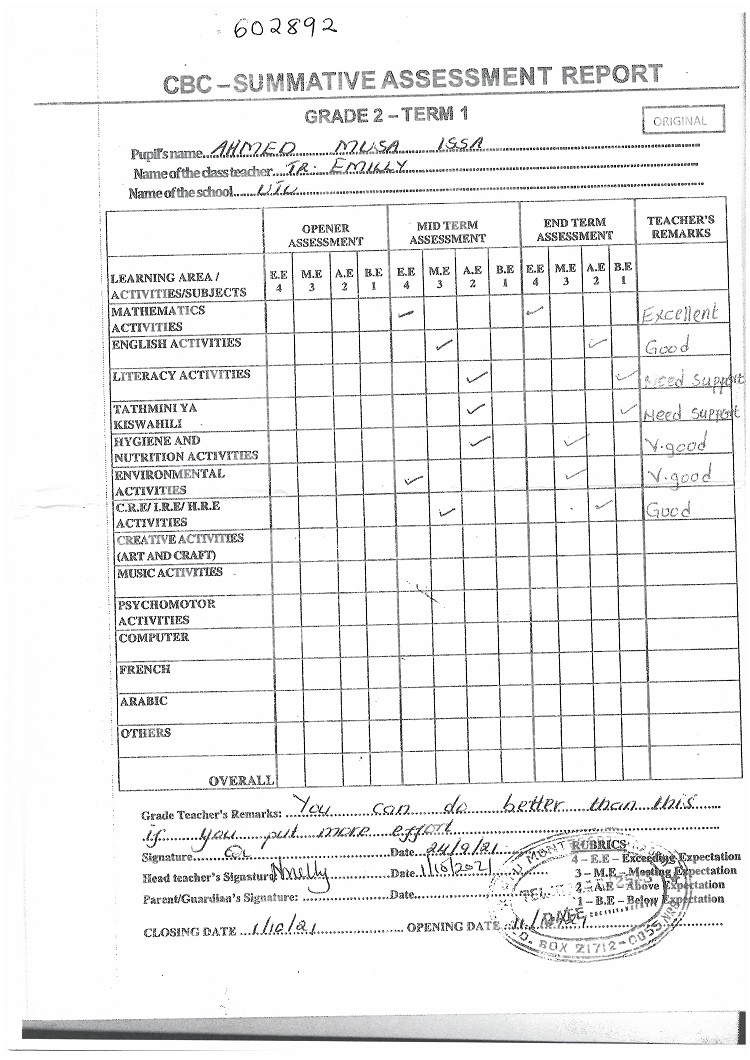 602892
CBC – SUMMATIVE ASSESSMENT REPORT
GRADE 2 – TERM 1
ORIGINAL
Pupil's name AHMED MUSA ISSA
Name of the class teacher TR. EMILLY
Name of the school
OPENER ASSESSMENT MID TERM ASSESSMENT END TERM ASSESSMENT TEACHER'S REMARKS
LEARNING AREA / ACTIVITIES/SUBJECTS E.E 4 M.E 3 A.E 2 B.E 1 E.E 4 M.E 3 A.E 2 B.E 1 E.E 4 M.E 3 A.E 2 B.E 1
MATHEMATICS ACTIVITIES ✓ ✓ Excellent
ENGLISH ACTIVITIES ✓ ✓ Good
LITERACY ACTIVITIES ✓ ✓ Need Support
TATHMINI YA KISWAHILI ✓ ✓ Need Support
HYGIENE AND NUTRITION ACTIVITIES ✓ ✓ V.good
ENVIRONMENTAL ACTIVITIES ✓ ✓ V.good
C.R.E/ I.R.E/ H.R.E ACTIVITIES ✓ ✓ Good
CREATIVE ACTIVITIES (ART AND CRAFT)
MUSIC ACTIVITIES
PSYCHOMOTOR ACTIVITIES
COMPUTER
FRENCH
ARABIC
OTHERS
OVERALL
Grade Teacher's Remarks: You can do better than this
if you put more effort
Signature Date 24/9/21
Head teacher's Signature Date 1/10/2021
Parent/Guardian's Signature: Date
CLOSING DATE 1/10/21 OPENING DATE
RUBRICS
4 – E.E – Exceeding Expectation
3 – M.E – Meeting Expectation
2 – A.E – Above Expectation
1 – B.E – Below Expectation
BOX 21712-